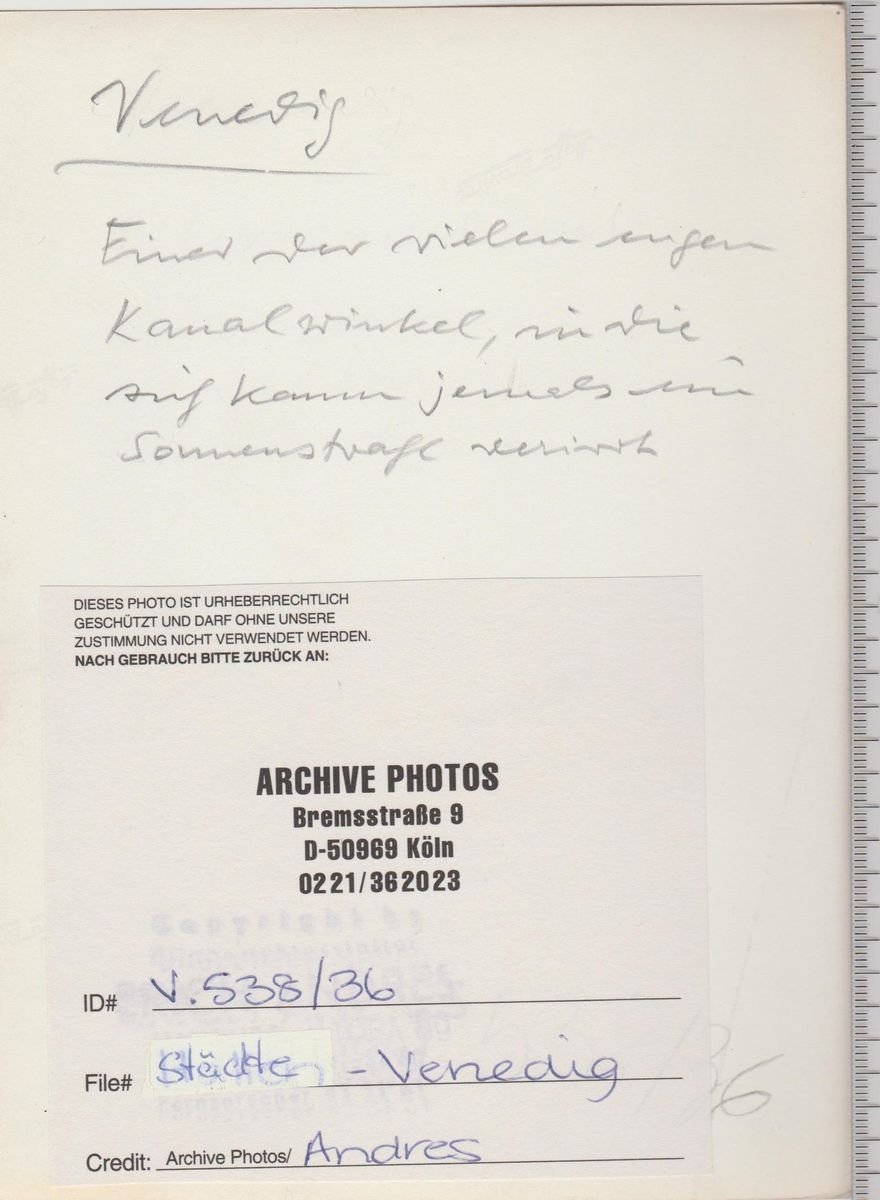 Venedig
Einer der vielen engen
Kanalwinkel, in die
sich kaum jemals ein
Sonnenstrahl verirrt
DIESES PHOTO IST URHEBERRECHTLICH
GESCHÜTZT UND DARF OHNE UNSERE
ZUSTIMMUNG NICHT VERWENDET WERDEN.
NACH GEBRAUCH BITTE ZURÜCK AN:
ARCHIVE PHOTOS
Bremsstraße 9
D-50969 Köln
0221/362023
Copyright by
ID# V.538/36
File# Städte - Venedig
Credit: Archive Photos/ Andres
36